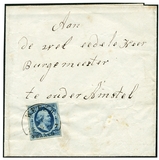 Aan
de wel edele Heer
Burgemeester
te ouder Amstel